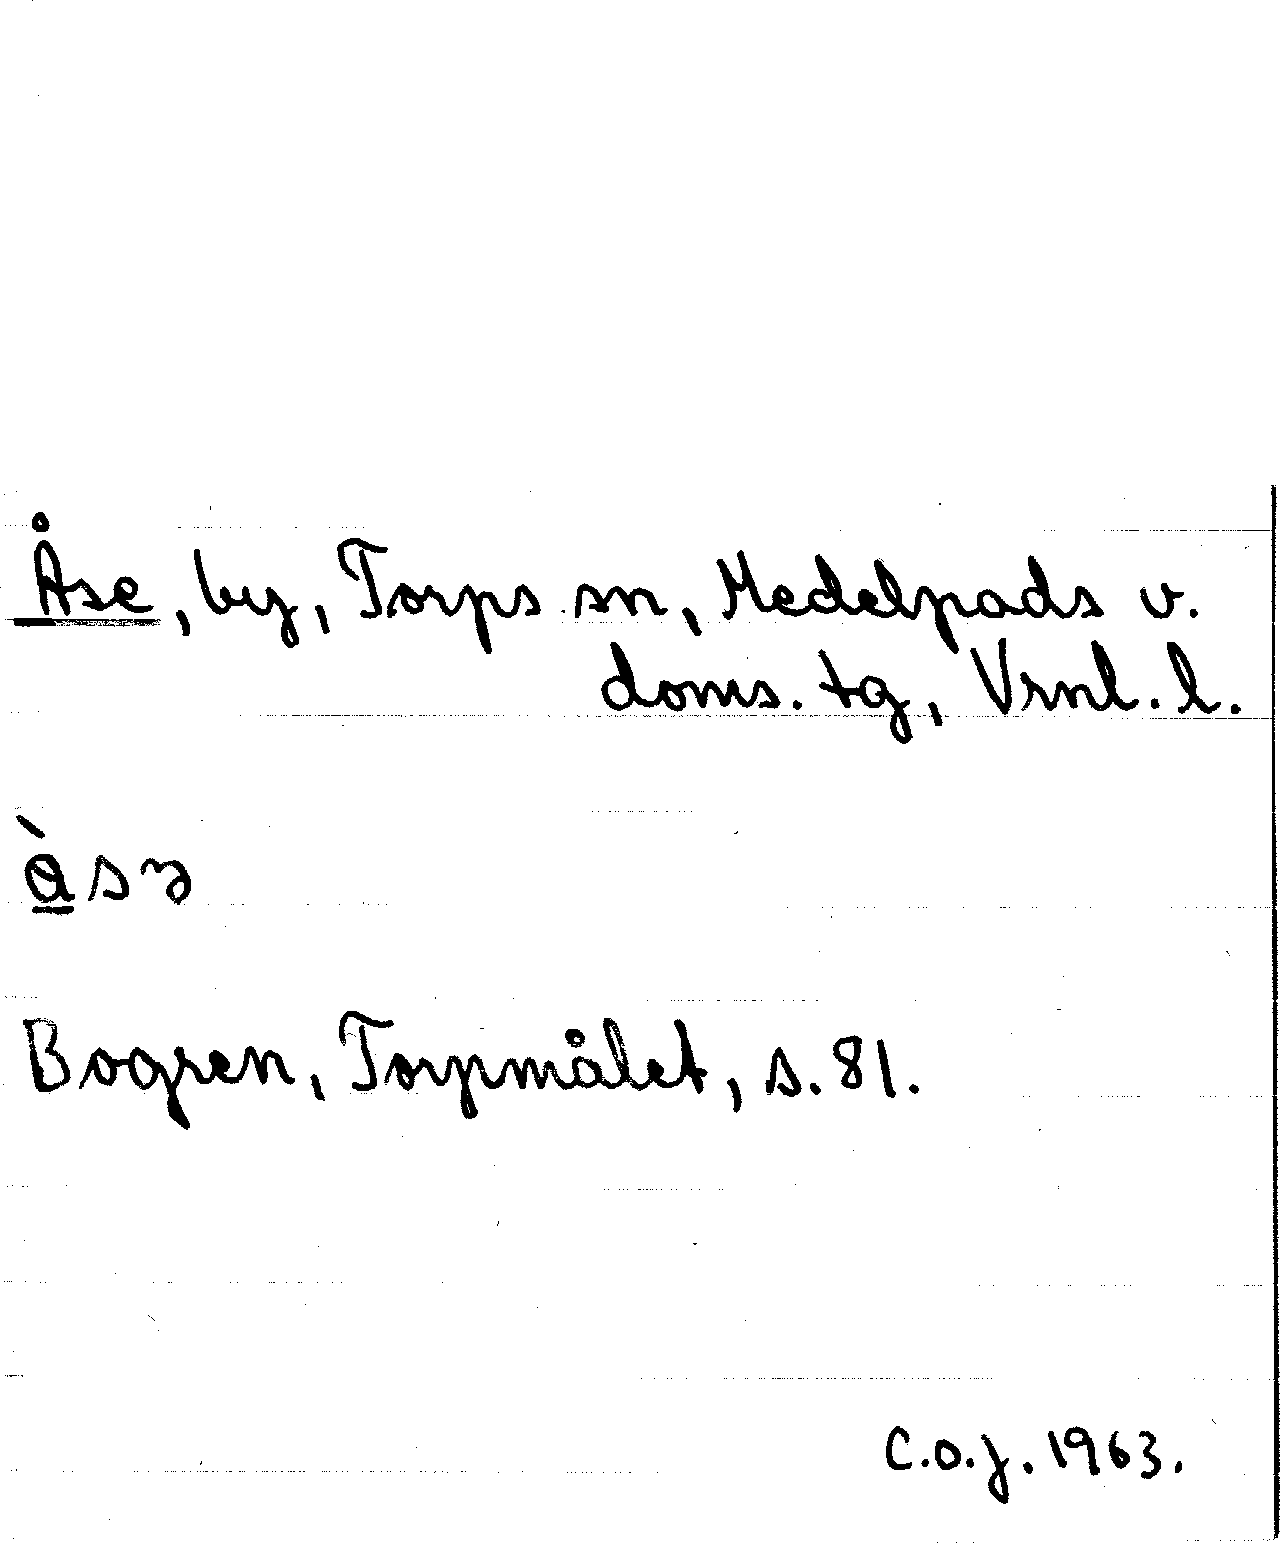 Åse, by, Torps sn, Medelpads v.
doms. tg, Vrnl. l.
Bogren, Torpmålet, s. 81.
C.O.J. 1963.